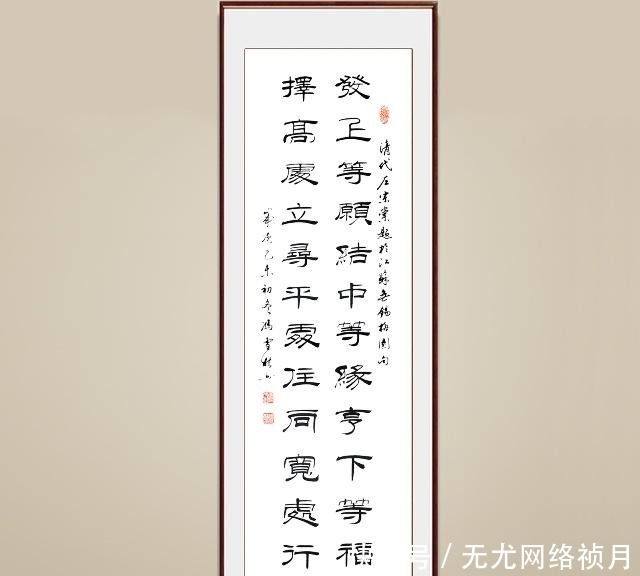 清代左宗棠題於江蘇無錫梅園句
發上等願結中等緣享下等福
擇髙處立尋平處住向寬處行
歲 乙未初冬馮雪
号/无尤网络祯月